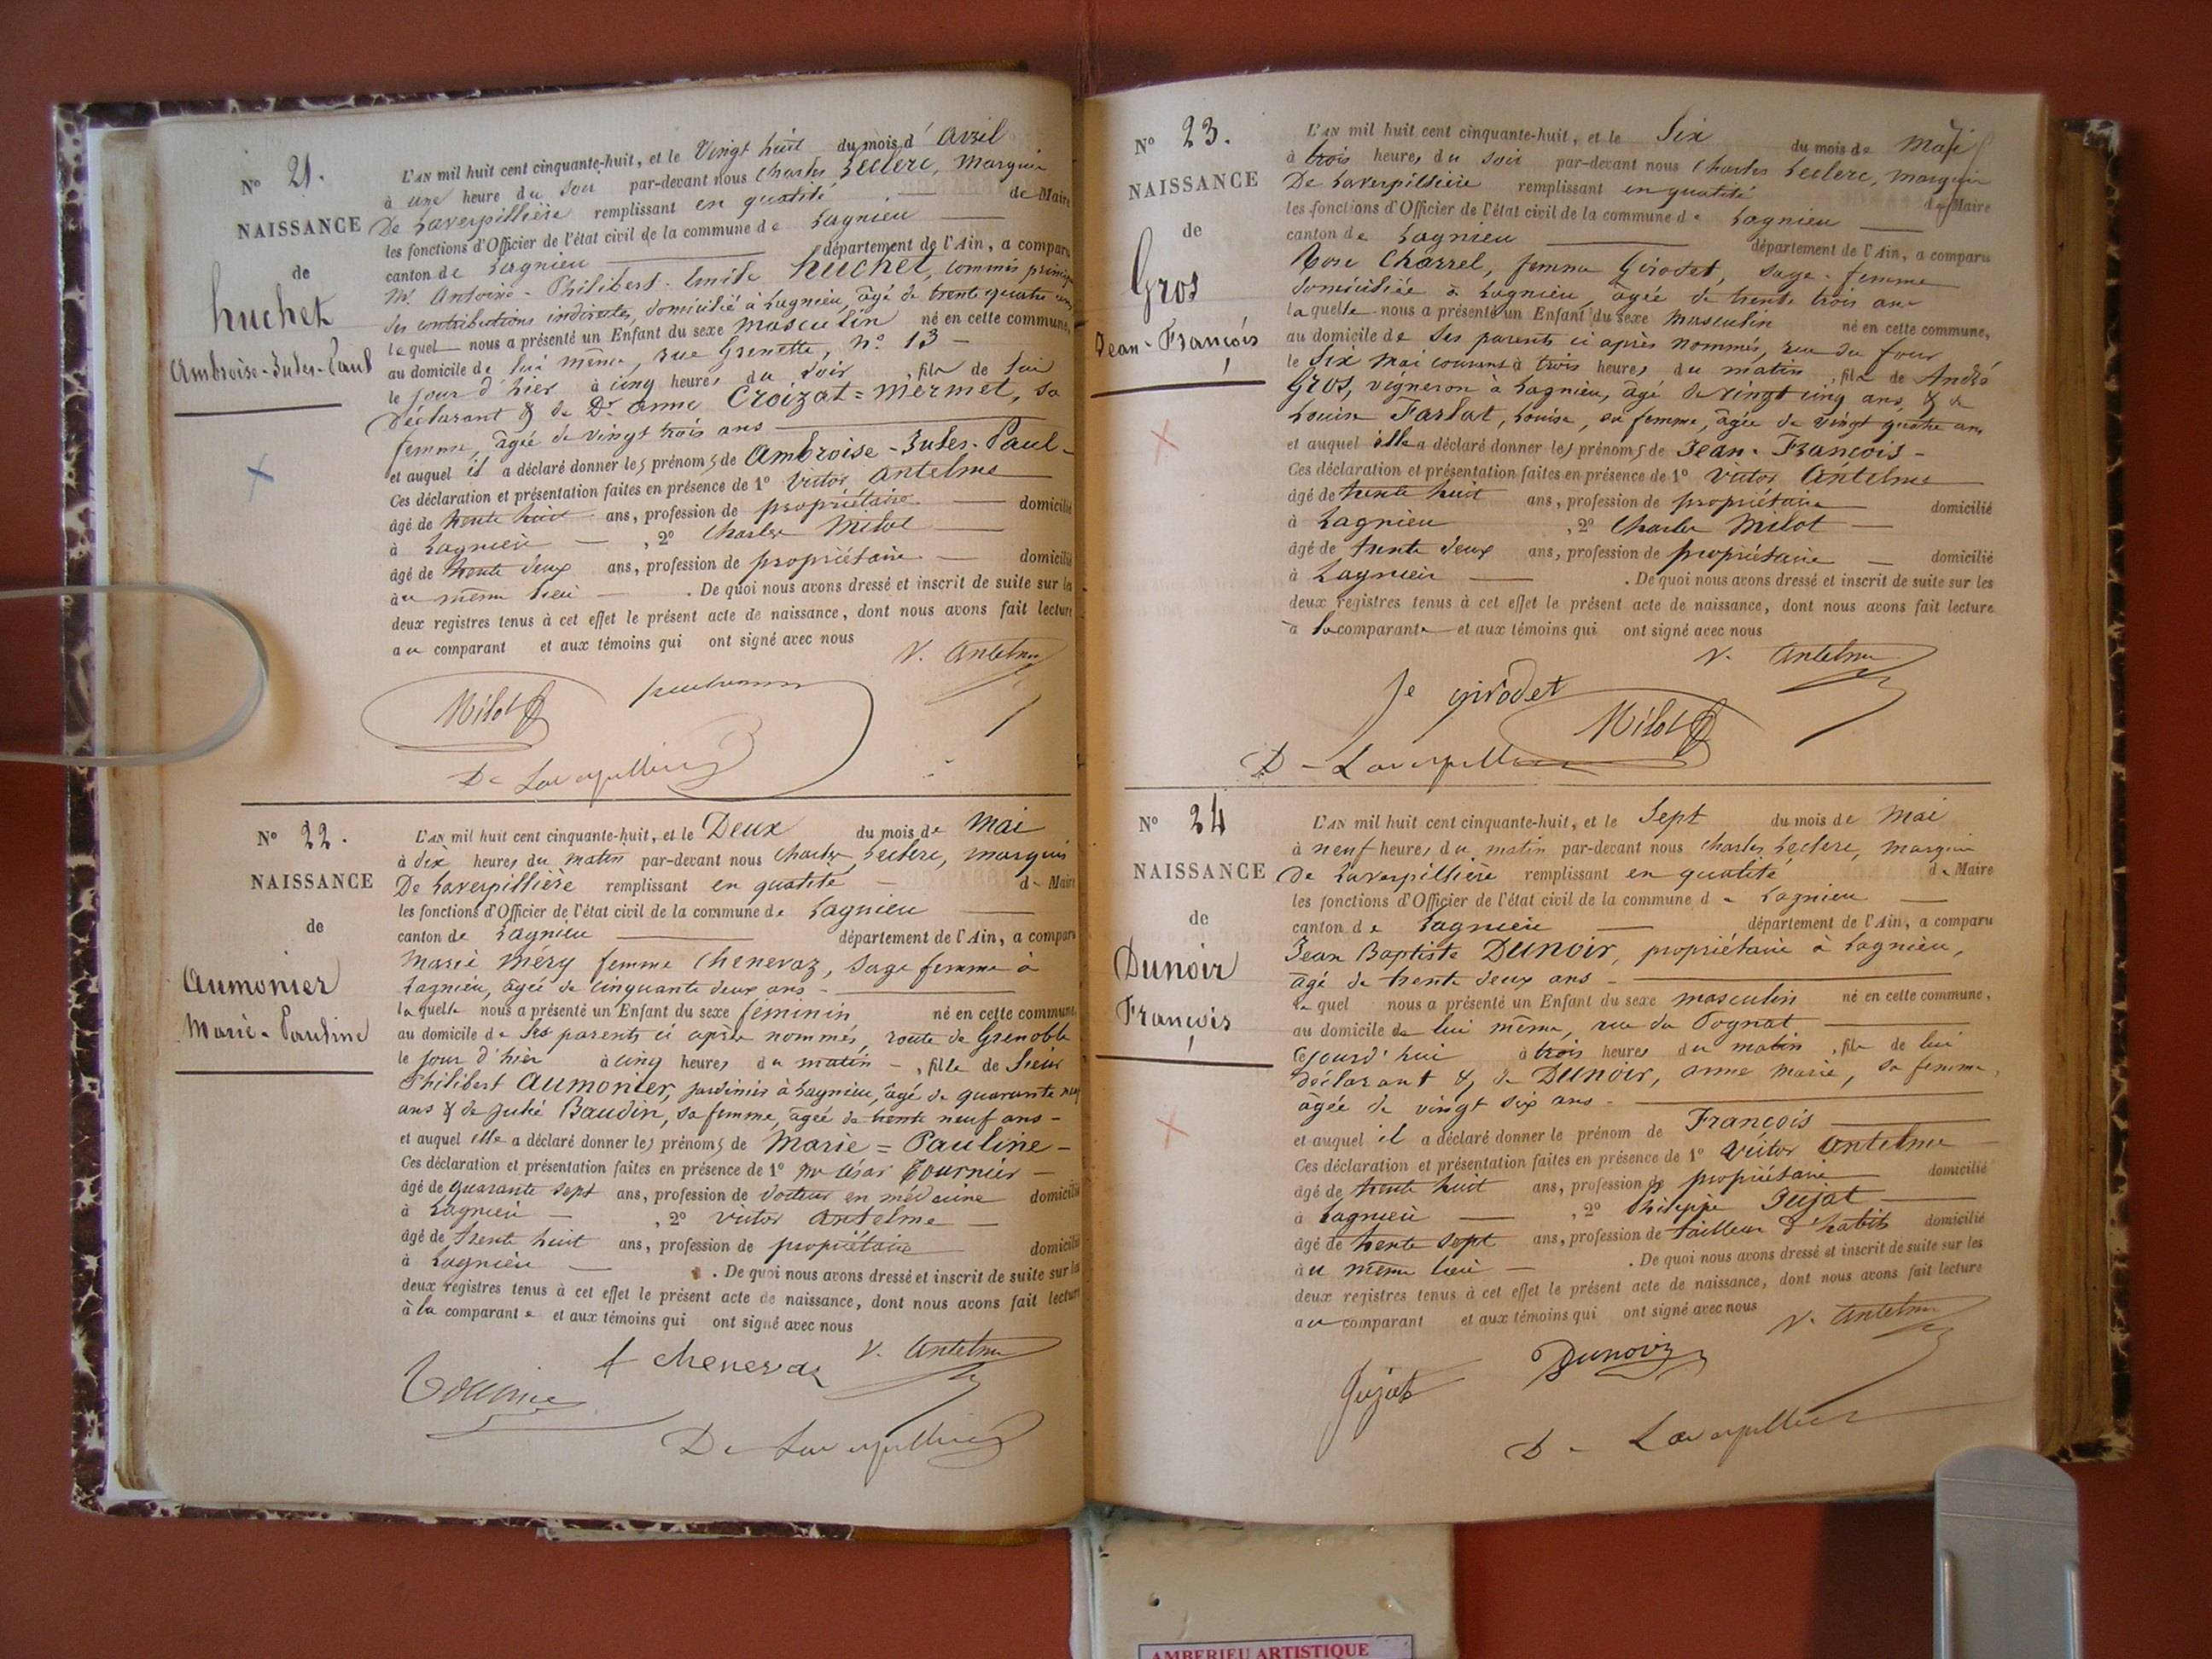 N° 21.
NAISSANCE
de
huchet
Ambroise-Jules-Paul
L'AN mil huit cent cinquante-huit, et le Vingt huit du mois d' avril
à une heure du soir par-devant nous Charles Leclerc, Marquis
De Laverpillière remplissant en qualité de Maire
les fonctions d'Officier de l'état civil de la commune de Lagnieu
canton de Lagnieu département de l'Ain, a comparu
Mr. Antoine-Philibert-Emile huchet, commis principal
des contributions indirectes, domicilié à Lagnieu, âgé de trente quatre ans
lequel nous a présenté un Enfant du sexe masculin né en cette commune,
au domicile de lui même, rue Grenette, n° 13 -
le jour d'hier à cinq heures du soir, fils de lui
Déclarant & de De anne Croizat=Mermet, sa
femme, âgée de vingt trois ans
et auquel il a déclaré donner les prénoms de Ambroise-Jules-Paul-
Ces déclaration et présentation faites en présence de 1° Victor antelme
âgé de trente huit ans, profession de propriétaire domicilié
à Lagnieu - , 2° Charles Milot
âgé de trente deux ans, profession de propriétaire - domicilié
au même lieu - . De quoi nous avons dressé et inscrit de suite sur les
deux registres tenus à cet effet le présent acte de naissance, dont nous avons fait lecture
au comparant et aux témoins qui ont signé avec nous
V. Antelme
Milot
De Laverpillière
N° 22.
NAISSANCE
de
Aumonier
Marie-Pauline
L'AN mil huit cent cinquante-huit, et le Deux du mois de Mai
à dix heures du matin par-devant nous Charles Leclerc, marquis
De Laverpillière remplissant en qualité - de Maire
les fonctions d'Officier de l'état civil de la commune de Lagnieu
canton de Lagnieu département de l'Ain, a comparu
Marie Méry femme Chenevaz, sage femme à
Lagnieu, âgée de cinquante deux ans -
laquelle nous a présenté un Enfant du sexe féminin né en cette commune,
au domicile de ses parents ci après nommés, route de Grenoble
le jour d'hier à cinq heures du matin -, fille de Sieur
Philibert Aumonier, jardinier à Lagnieu, âgé de quarante neuf
ans & de Julie Baudin, sa femme, âgée de trente neuf ans -
et auquel elle a déclaré donner les prénoms de Marie = Pauline -
Ces déclaration et présentation faites en présence de 1° Mr César Tournier -
âgé de quarante sept ans, profession de docteur en médecine domicilié
à Lagnieu - , 2° Victor Antelme -
âgé de trente huit ans, profession de propriétaire domicilié
à Lagnieu - . De quoi nous avons dressé et inscrit de suite sur les
deux registres tenus à cet effet le présent acte de naissance, dont nous avons fait lecture
à la comparante et aux témoins qui ont signé avec nous
f chenevaz V. Antelme
De Laverpillière
N° 23.
NAISSANCE
de
Gros
Jean-François
L'AN mil huit cent cinquante-huit, et le Six du mois de Mai
à trois heures du soir par-devant nous Charles Leclerc, marquis
De Laverpillière remplissant en qualité de Maire
les fonctions d'Officier de l'état civil de la commune de Lagnieu
canton de Lagnieu département de l'Ain, a comparu
Rose Charrel, femme Girodet, sage-femme
domiciliée à Lagnieu, âgée de trente trois ans
laquelle nous a présenté un Enfant du sexe masculin né en cette commune,
au domicile de ses parents ci après nommés, rue du four
le Six Mai courant à trois heures du matin, fils de André
Gros, vigneron à Lagnieu, âgé de vingt cinq ans, & de
Louise Farlat, Louise, sa femme, âgée de vingt quatre ans
et auquel elle a déclaré donner les prénoms de Jean-François -
Ces déclaration et présentation faites en présence de 1° Victor Antelme
âgé de trente huit ans, profession de propriétaire domicilié
à Lagnieu , 2° Charles Milot -
âgé de trente deux ans, profession de propriétaire - domicilié
à Lagnieu . De quoi nous avons dressé et inscrit de suite sur les
deux registres tenus à cet effet le présent acte de naissance, dont nous avons fait lecture
à la comparante et aux témoins qui ont signé avec nous
V. Antelme
fe girodet
Milot
De Laverpillière
N° 24
NAISSANCE
de
Dunoir
François
L'AN mil huit cent cinquante-huit, et le Sept du mois de Mai
à neuf heures du matin par-devant nous Charles Leclerc, marquis
De Laverpillière remplissant en qualité de Maire
les fonctions d'Officier de l'état civil de la commune de Lagnieu
canton de Lagnieu département de l'Ain, a comparu
Jean Baptiste Dunoir, propriétaire à Lagnieu,
âgé de trente deux ans -
lequel nous a présenté un Enfant du sexe masculin né en cette commune,
au domicile de lui même, rue du Pognat
cejourd'hui à trois heures du matin, fils de lui
Déclarant & de Dunoir, anne marie, sa femme,
âgée de vingt six ans -
et auquel il a déclaré donner le prénom de François
Ces déclaration et présentation faites en présence de 1° Victor Antelme
âgé de trente huit ans, profession de propriétaire domicilié
à Lagnieu , 2° Philippe Jujat
âgé de trente sept ans, profession de tailleur d'habits domicilié
au même lieu - . De quoi nous avons dressé et inscrit de suite sur les
deux registres tenus à cet effet le présent acte de naissance, dont nous avons fait lecture
au comparant et aux témoins qui ont signé avec nous
V. Antelme
Jujat Dunoir
De Laverpillière
AMBERIEU ARTISTIQUE